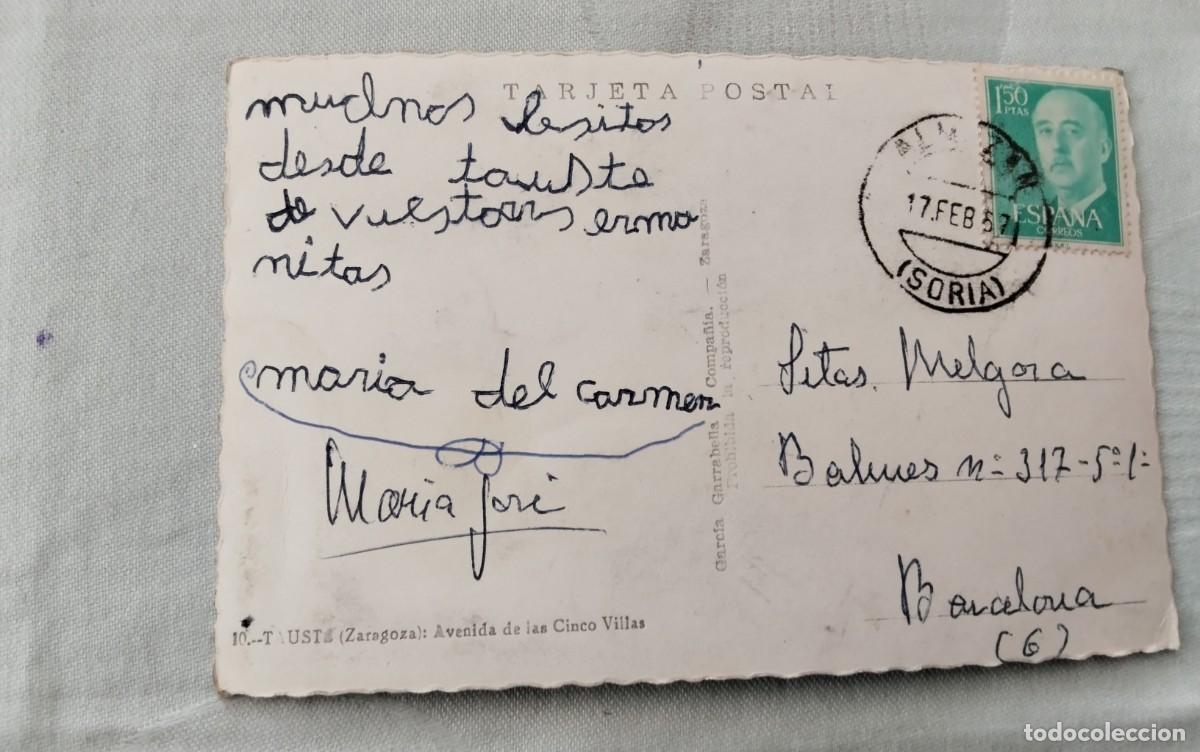 TARJETA POSTAL
muchos besitos
desde tauste
de vuestras erma
nitas
maria del carmen
Maria José
10.--TAUSTE (Zaragoza): Avenida de las Cinco Villas
García Garrabella y Compañía. — Zaragoza
Prohibida la reproducción
1'50
PTAS
ESPAÑA
CORREOS
ALMAZAN
17.FEB 57
(SORIA)
Sitas. Melgora
Balmes nº 317-5º 1ª
Barcelona
(6)
todocoleccion